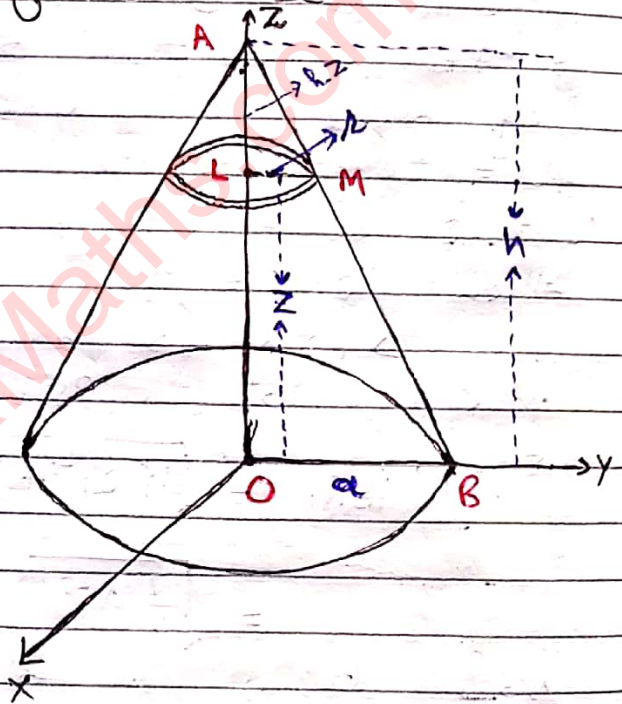 Z
A
h-z
r
L
M
h
z
O
a
B
Y
X
Maths.com